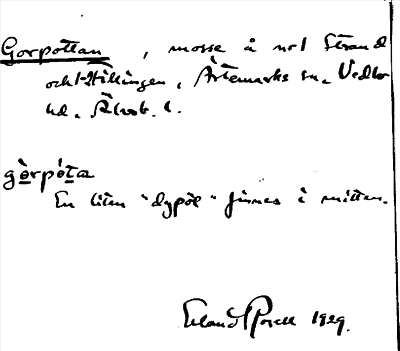 Gorpottan, mosse å not Strand
och Hällingen, Ärtemarks sn. Vedbo
hd. Älvsb. l.
gòrpóta
En liten "dypöl" finnes i mitten.
Erland Rosell 1929.